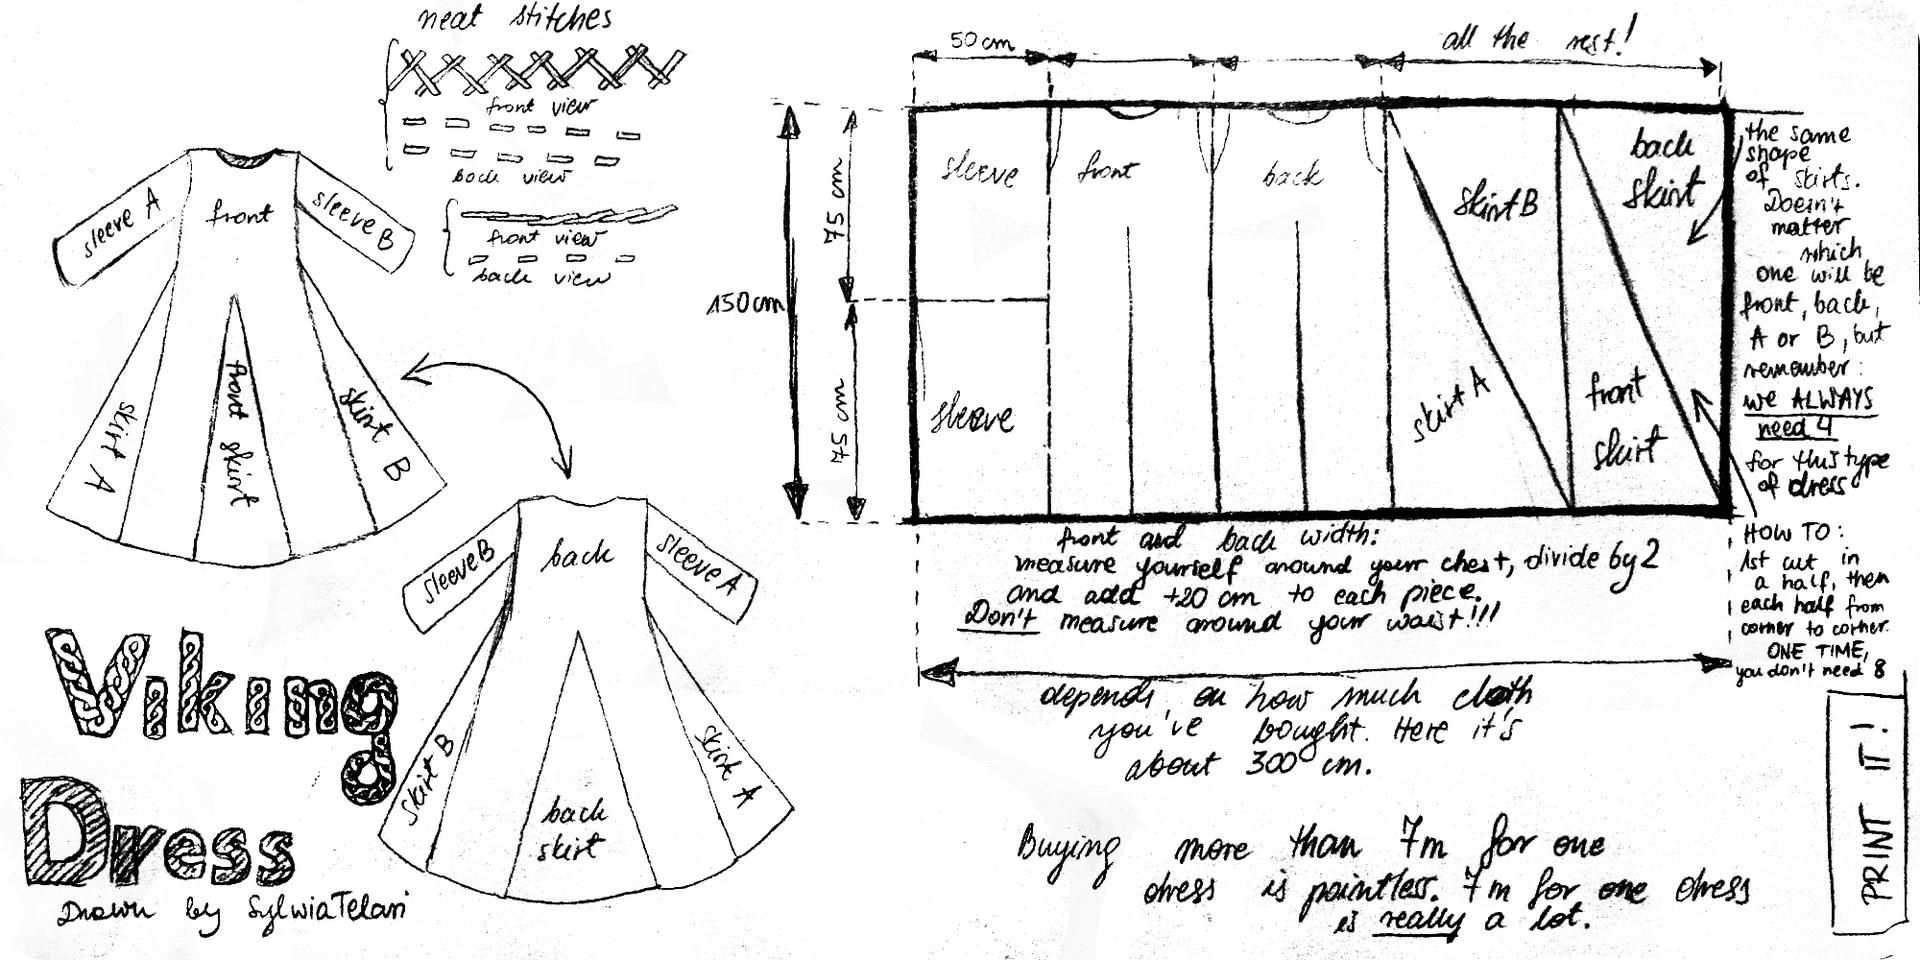 neat stitches
front view
back view
front view
back view
sleeve A
front
sleeve B
skirt A
front skirt
skirt B
sleeve B
back
sleeve A
skirt B
back
skirt
skirt A
Viking
Dress
Drawn by SylwiaTelari
50cm
all the rest!
150cm
75 cm
75 cm
sleeve
front
back
skirt B
back
skirt
sleeve
skirt A
front
skirt
front and back width:
measure yourself around your chest, divide by 2
and add +20 cm to each piece.
Don't measure around your waist!!!
depends on how much cloth
you've bought. Here it's
about 300 cm.
Buying more than 7m for one
dress is pointless. 7m for one dress
is really a lot.
the same
shape
of skirts.
Doesn't
matter
which
one will be
front, back,
A or B, but
remember:
we ALWAYS
need 4
for this type
of dress
HOW TO:
1st cut in
a half, then
each half from
corner to corner.
ONE TIME,
you don't need 8
PRINT IT!